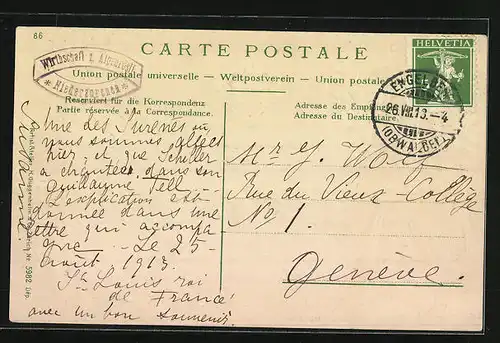 66
CARTE POSTALE
HELVETIA
Wirthschaft z. Alpenrösli
* Niederrickenbach *
Union postale universelle. — Weltpostverein. — Union postale
ENGELBERG
26.VIII.13.–4
(OBWALDEN)
Reserviert für die Korrespondenz
Partie réservée à la Correspondance.
Adresse des Empfängers
Adresse du Destinataire.
Une des Surènes où
nous sommes allés
hier, et que Schiller
a chantées dans son
Guillaume Tell.
L'explication est
donnée dans une
lettre qui accompa
gne — Le 25
août 1913.
St Louis roi
de France
avec un bon souvenir
Mr
Rue du Vieux-Collège
No 1.
Genève.
Nr. 5982